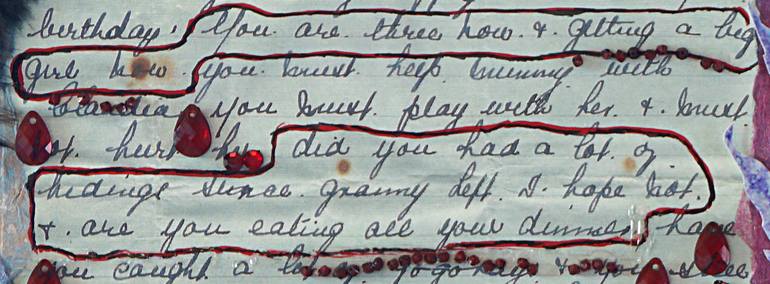 birthday. You are three now. & getting a big
girl now you must help mummy with
Claudia you must play with her & must
not. hurt her did you had a lot. of
hidings sence granny left I hope not.
& are you eating all your dinner have
you caught a lot you see